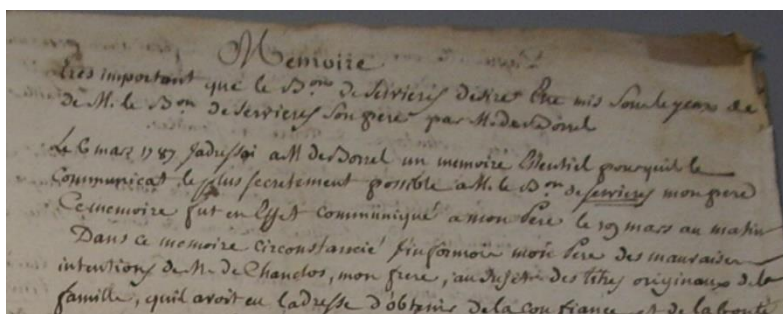 Memoire
tres important que le Bon de Servieres desire Etre mis sous le yeux de
de M. le Bon de Servieres son pere par M. de Borrel
Le 6 mars 1787 J'adressai a M de Borrel un memoire Essentiel pour qu'il le
communicat le plus secretement possible a M. le Bon de Servieres mon pere
Ce memoire fut en Effet communiqué a mon Pere le 19 mars au matin
Dans ce memoire circonstancié J'informoir mon Pere des mauvaises
intentions de Mr de Chanclos, mon frere, au sujet des titres originaux de la
famille, quil avoit eu ladresse d'obtenir de la confiance et de la bonté